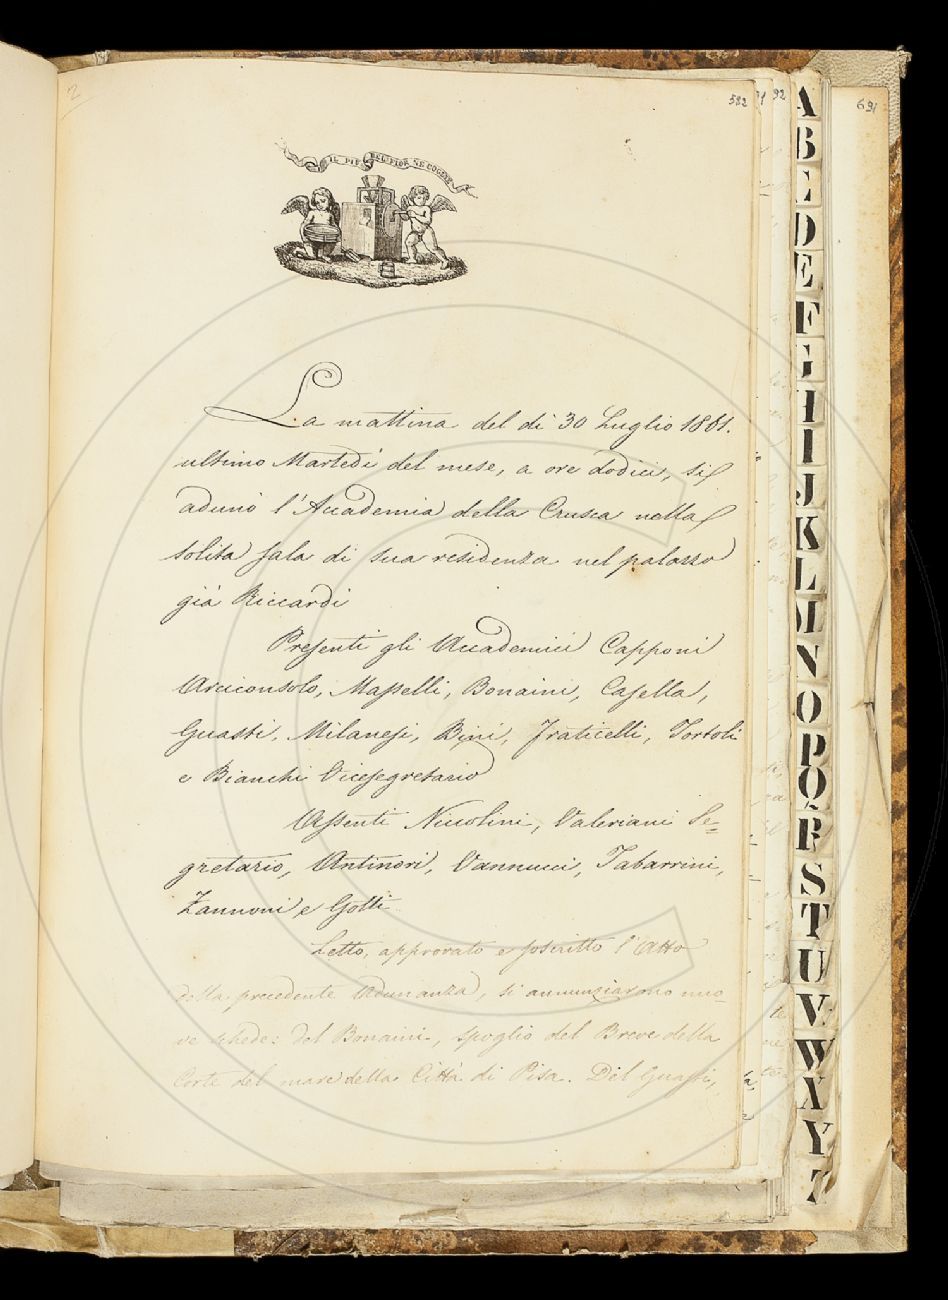 2
582
91
92
691
IL PIÙ BEL FIOR NE COGLIE
La mattina del dì 30 Luglio 1861.
ultimo Martedì del mese, a ore dodici, si
adunò l'Accademia della Crusca nella
solita sala di sua residenza nel palazzo
già Riccardi
Presenti gli Accademici Capponi
Arciconsolo, Masselli, Bonaini, Casella,
Guasti, Milanesi, Bini, Fraticelli, Tortoli
e Bianchi Vicesegretario
Assenti Niccolini, Valeriani Se=
gretario, Antinori, Vannucci, Tabarrini,
Zannoni e Gotti.
Letto, approvato e soscritto l'Atto
della precedente Adunanza, si annunziarono nuo-
ve schede: del Bonaini, spoglio del Breve della
Corte del mare della Città di Pisa. Del Guasti,
A
B
C
D
E
F
G
H
I
J
K
L
M
N
O
P
Q
R
S
T
U
V
W
X
Y
Z